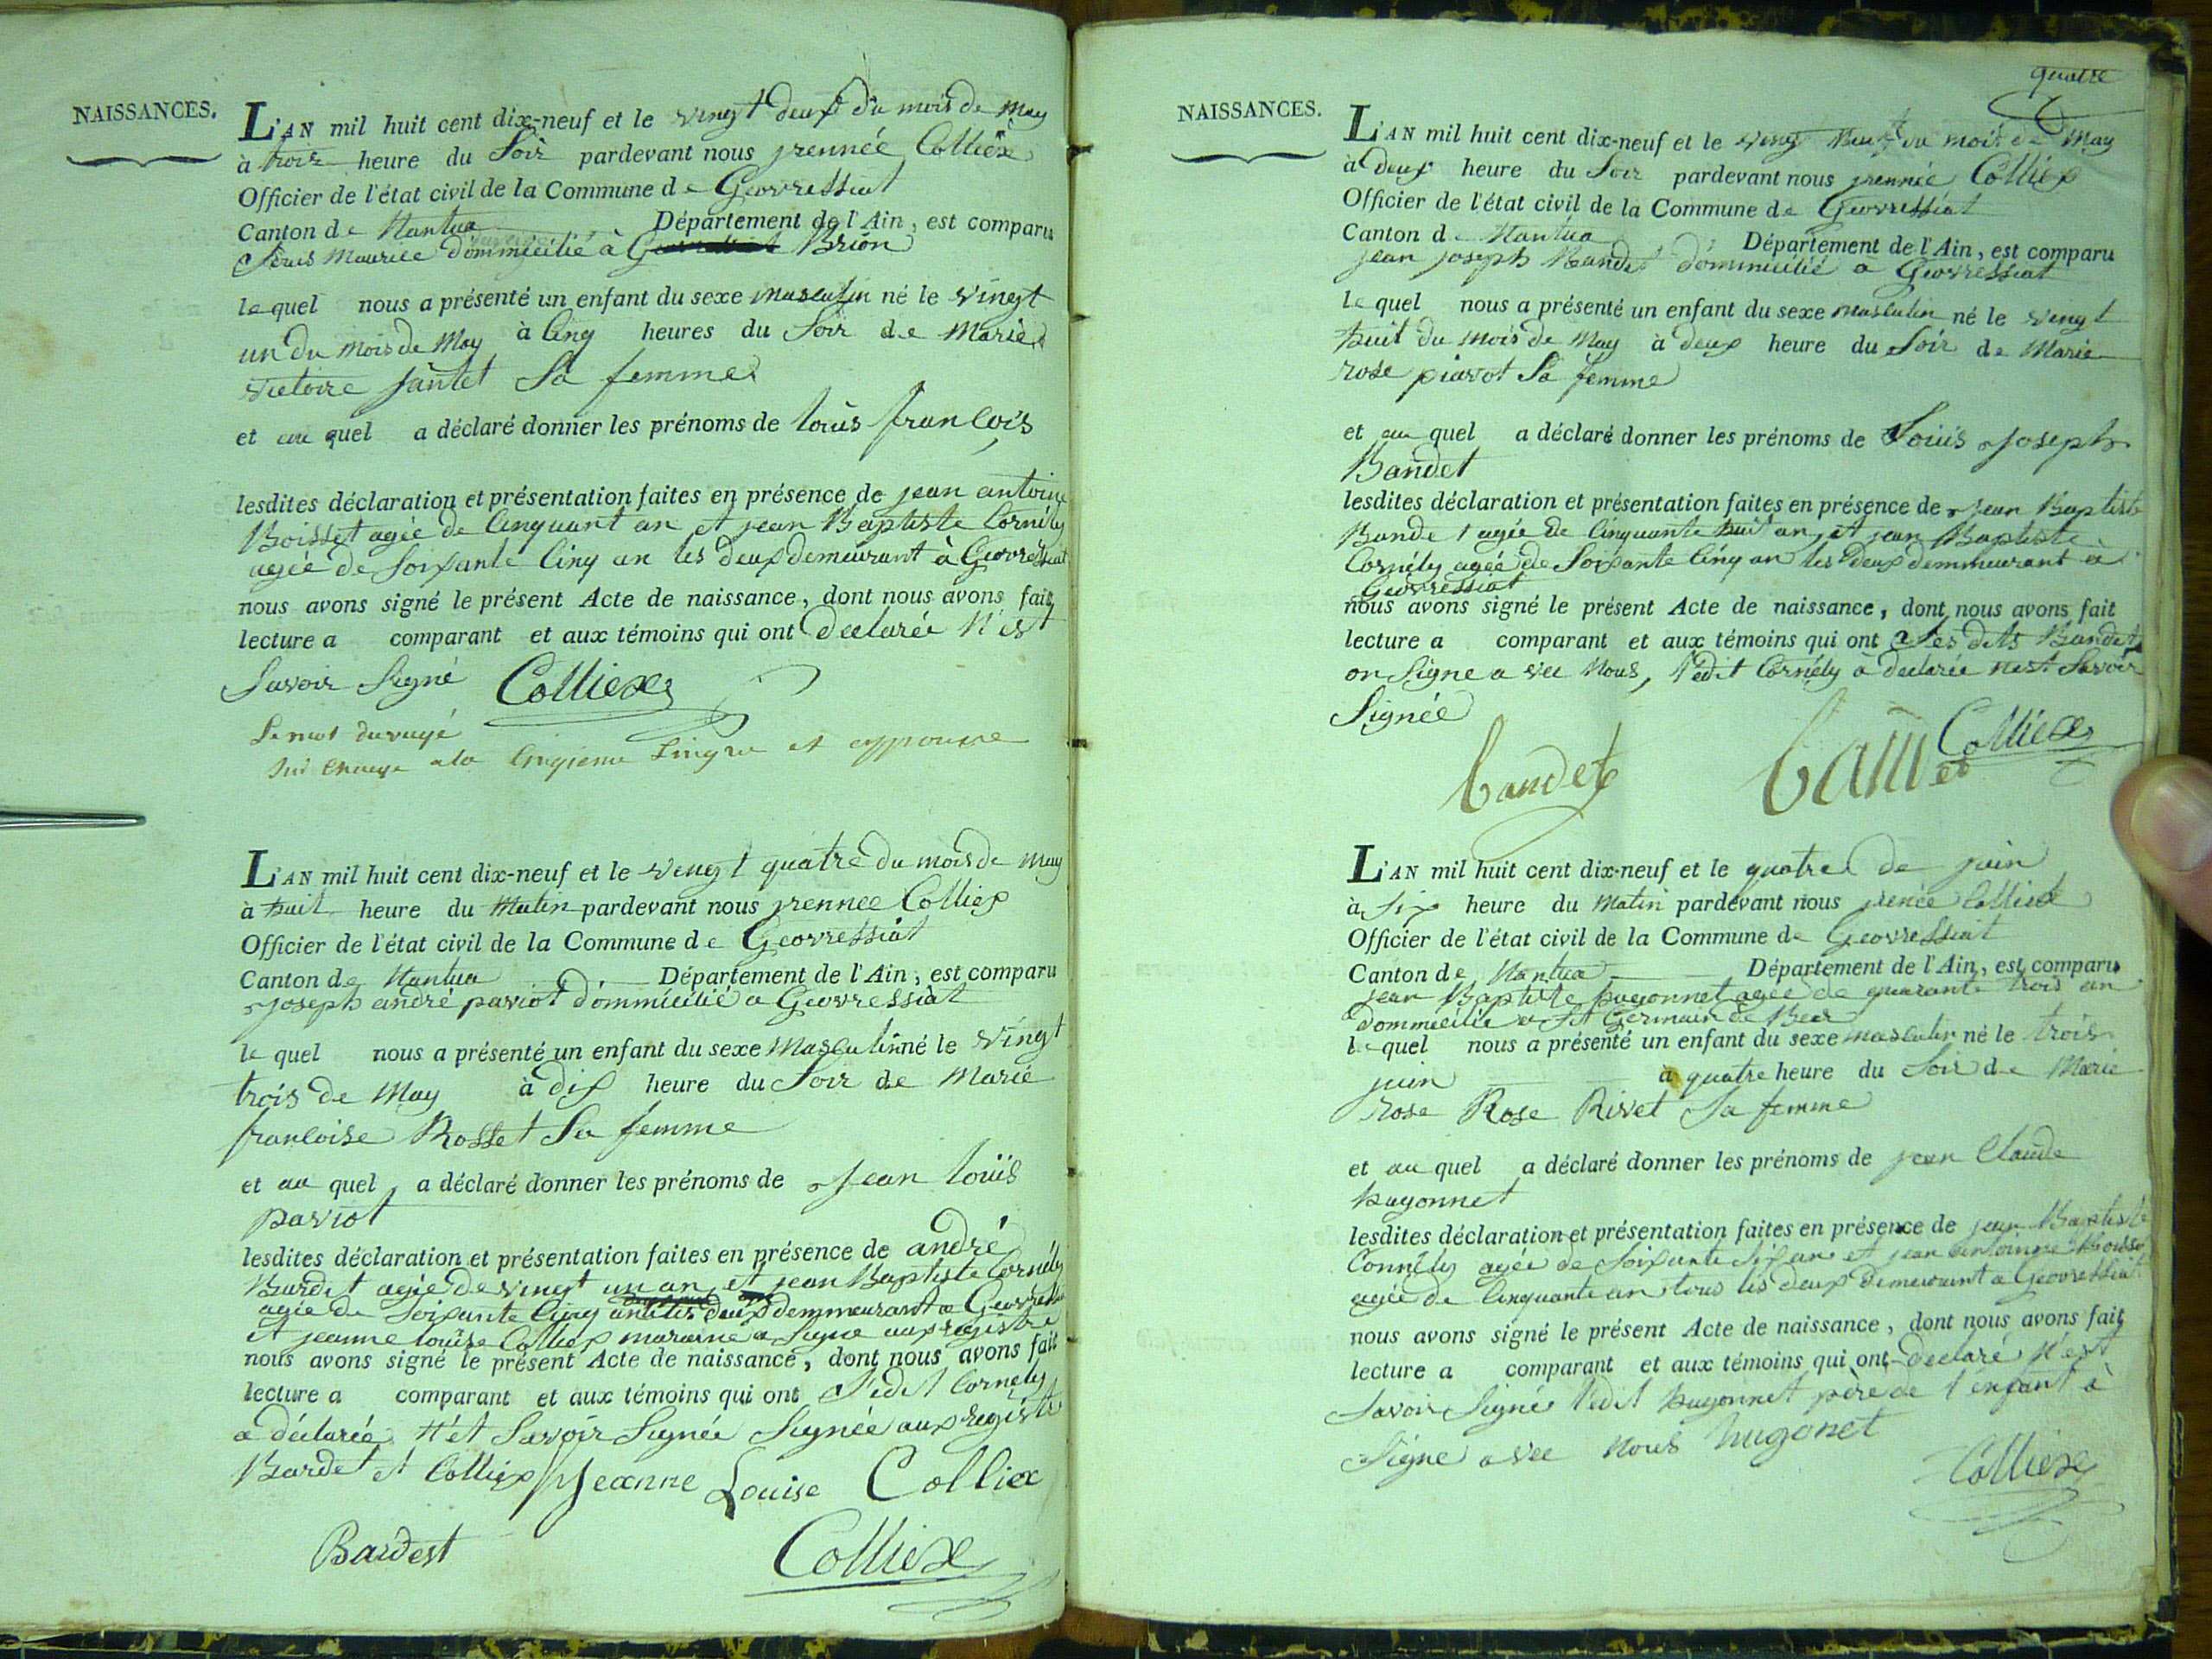 NAISSANCES.
L'AN mil huit cent dix-neuf et le vingt deux du mois de may
à trois heure du Soir pardevant nous rennée Colliex
Officier de l'état civil de la Commune de Geovressiat
Canton de Nantua Département de l'Ain, est comparu
Maurice dommicilié à Brion
lequel nous a présenté un enfant du sexe masculin né le vingt
un du mois de May à Cinq heures du Soir de Marie
victoire jantet Sa femme
et au quel a déclaré donner les prénoms de loüis françois
lesdites déclaration et présentation faites en présence de jean antoine
Boisset agée de Cinquant an et jean Baptiste Cornély
agée de Soixante Cinq an les deux demeurant à Geovressiat
nous avons signé le présent Acte de naissance, dont nous avons fait
lecture a comparant et aux témoins qui ont declarée n'est
Savoir Signé Colliex
Le mot
a la Cinqieme et
L'AN mil huit cent dix-neuf et le vengt quatre du mois de may
à huit heure du Matin pardevant nous rennee Colliex
Officier de l'état civil de la Commune de Geovressiat
Canton de Nantua Département de l'Ain, est comparu
Joseph andré paviot dommicilié a Geovressiat
le quel nous a présenté un enfant du sexe Masculin né le vingt
trois de May à dix heure du Soir de Marie
francoise Rosset Sa femme
et au quel a déclaré donner les prénoms de Jean loüis
paviot
lesdites déclaration et présentation faites en présence de andré
Bardet agée de vingt un an et jean Baptiste Cornély
agée de Soixante Cinq an les deux demmeurant a Geovressiat
et jeanne louise Colliex maraine a Signe aux registre
nous avons signé le présent Acte de naissance, dont nous avons fait
lecture a comparant et aux témoins qui ont ledit Cornely
a déclarée n'ét Savoir Signée Signée aux registre
Bardet et Colliex Jeanne Louise Colliex
Bardest Colliex
quatre
NAISSANCES.
L'AN mil huit cent dix-neuf et le vingt neuf du mois de May
à deux heure du Soir pardevant nous rennée Colliex
Officier de l'état civil de la Commune de Geovressiat
Canton de Nantua Département de l'Ain, est comparu
jean joseph Bandet dommicilié a Geovressiat
le quel nous a présenté un enfant du sexe masculin né le vingt
huit du mois de May à deux heure du Soir de Marie
rose piavot Sa femme
et au quel a déclaré donner les prénoms de Loüis Joseph
Bandet
lesdites déclaration et présentation faites en présence de Jean Baptiste
Bandet agée de Cinquante huit an et jean Baptiste
Cornély agée de Soixante Cinq an les deux demmeurant a
Geovressiat
nous avons signé le présent Acte de naissance, dont nous avons fait
lecture a comparant et aux témoins qui ont Les dits Bandet
on Signe a vec Nous, ledit Cornély à declarée nest Savoir
Signée
bandet Colliex
L'AN mil huit cent dix-neuf et le quatre de juin
à Six heure du Matin pardevant nous renée Colliex
Officier de l'état civil de la Commune de Geovressiat
Canton de Nantua Département de l'Ain, est comparu
jean Baptiste hugonnet agée de quarante trois an
dommicilie a St Germain de Beer
lequel nous a présenté un enfant du sexe masculin né le trois
juin à quatre heure du Soir de Marie
rose Rose Rivet Sa femme
et au quel a déclaré donner les prénoms de jean Claude
hugonnet
lesdites déclaration et présentation faites en présence de jean Baptiste
Cornély agée de Soixante Six an et jean antoinne Boisset
agée de Cinquante an tous les deux demeurant a Geovressiat
nous avons signé le présent Acte de naissance, dont nous avons fait
lecture a comparant et aux témoins qui ont declaré n'est
Savoir Signé ledit hugonnet père de l'enfant à
Signe avec Nous hugonet
Colliex